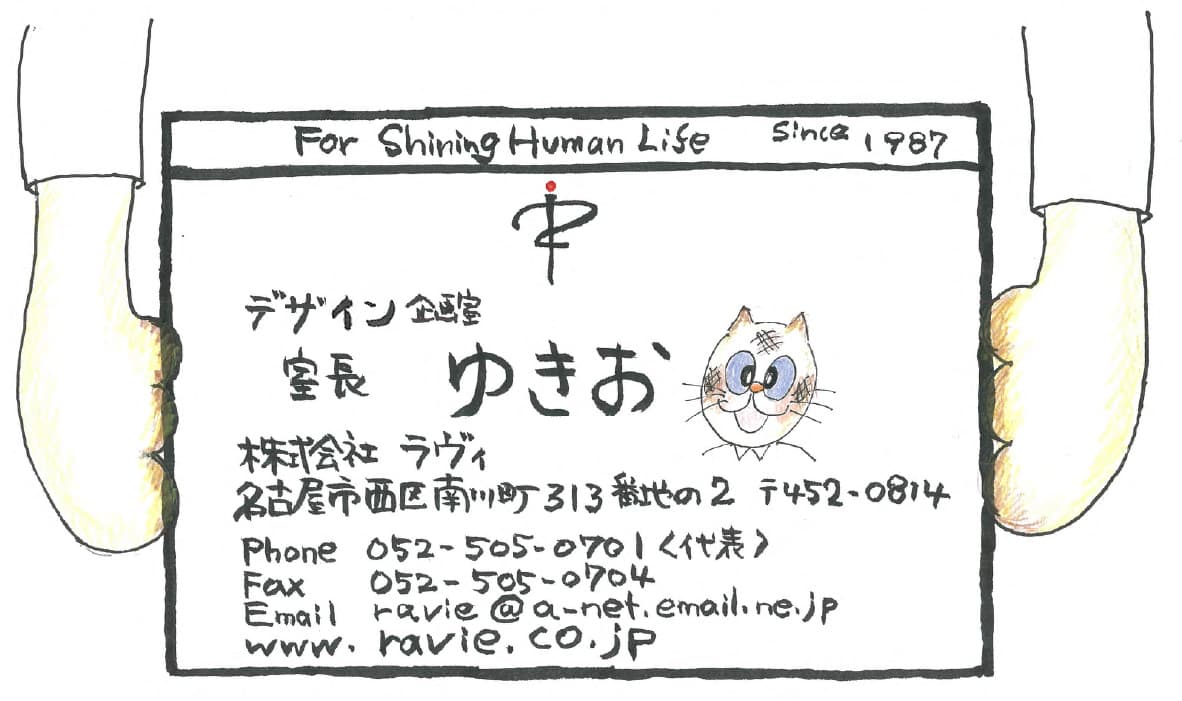 For Shining Human Life Since 1987
デザイン企画室
室長 ゆきお
株式会社 ラヴィ
名古屋市西区南川町313番地の2 〒452-0814
Phone 052-505-0701〈代表〉
Fax 052-505-0704
Email ravie@a-net.email.ne.jp
www.ravie.co.jp